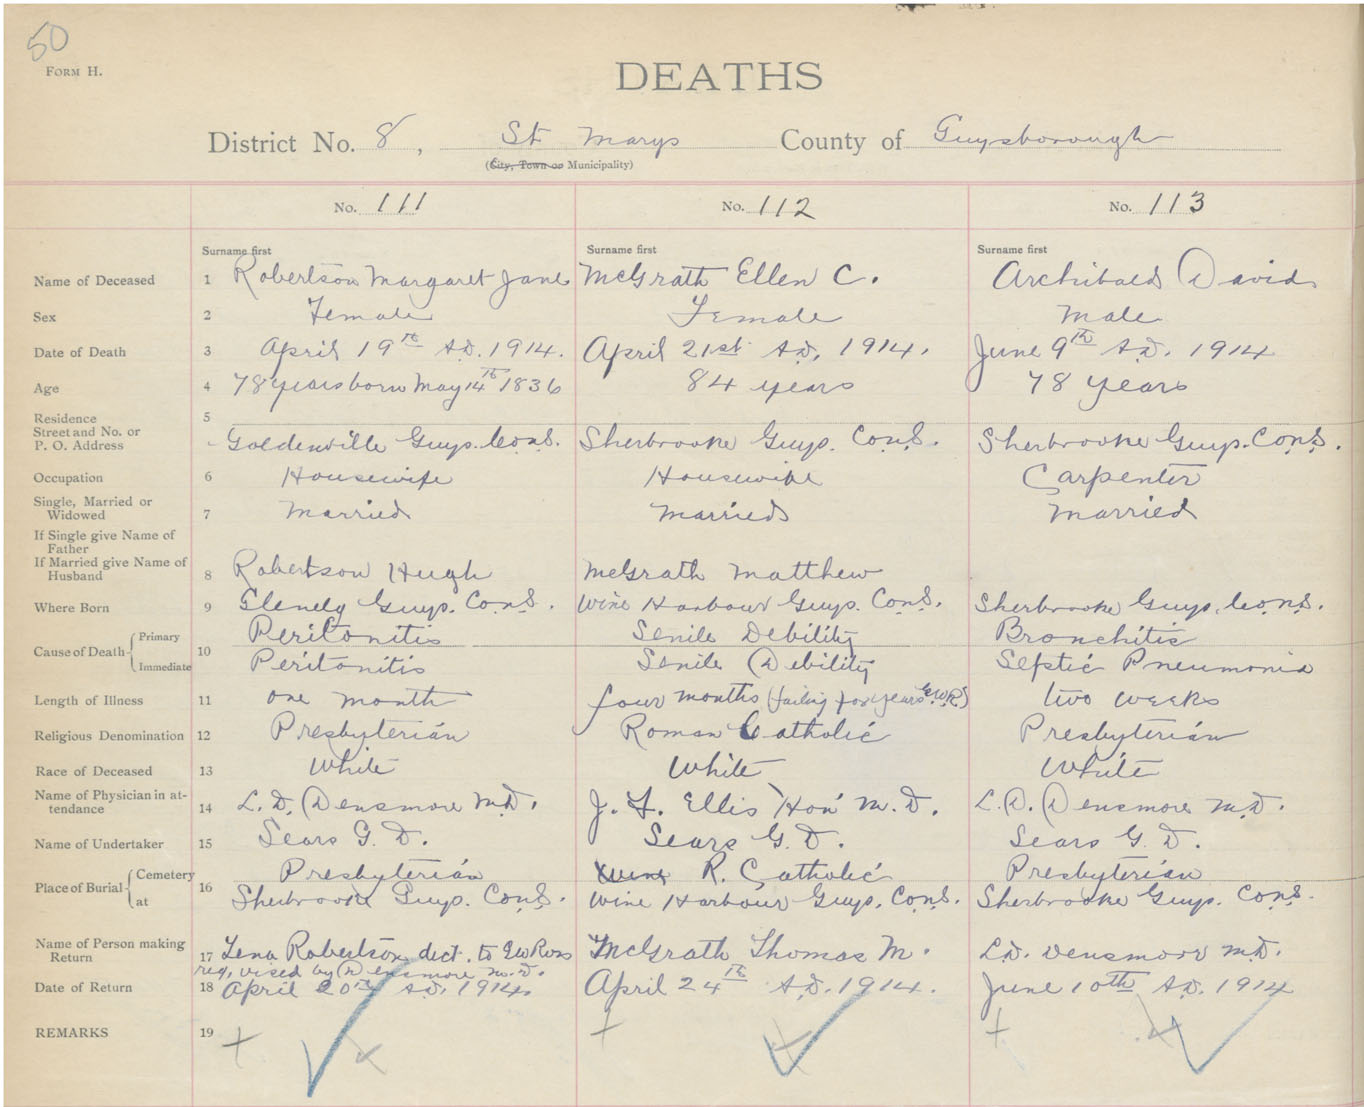 50
FORM H.
DEATHS
District No. 8, St Marys County of Guysborough
(City, Town or Municipality)
No. 111 No. 112 No. 113
Surname first Surname first Surname first
Name of Deceased 1 Robertson Margaret Jane McGrath Ellen C. Archibald David
Sex 2 Female Female Male
Date of Death 3 April 19th A.D. 1914. April 21st A.D. 1914. June 9th A.D. 1914
Age 4 78 years born May 14th 1836 84 years 78 years
Residence 5
Street and No. or
P. O. Address Goldenville Guys. Co N.S. Sherbrooke Guys. Co N.S. Sherbrooke Guys. Co N.S.
Occupation 6 Housewife Housewife Carpenter
Single, Married or
Widowed 7 Married Married Married
If Single give Name of
Father
If Married give Name of
Husband 8 Robertson Hugh McGrath Matthew
Where Born 9 Glenelg Guys. Co N.S. Wine Harbour Guys. Co N.S. Sherbrooke Guys. Co N.S.
Cause of Death Primary Peritonitis Senile Debility Bronchitis
10 Immediate Peritonitis Senile Debility Septic Pneumonia
Length of Illness 11 one month four months (failing for years G.W.R) two weeks
Religious Denomination 12 Presbyterian Roman Catholic Presbyterian
Race of Deceased 13 White White White
Name of Physician in at-
tendance 14 L. D. Densmore M.D. J. F. Ellis "Hon" M.D. L. D. Densmore M.D.
Name of Undertaker 15 Sears G. D. Sears G. D. Sears G. D.
Place of Burial Cemetery Presbyterian R. Catholic Presbyterian
16 at Sherbrooke Guys. Co N.S. Wine Harbour Guys. Co N.S. Sherbrooke Guys. Co N.S.
Name of Person making
Return 17 Lena Robertson dict. to GW Ross McGrath Thomas M. L.D. Densmore M.D.
vised by Densmore M.D.
Date of Return 18 April 20th A.D. 1914. April 24th A.D. 1914. June 10th A.D. 1914
REMARKS 19